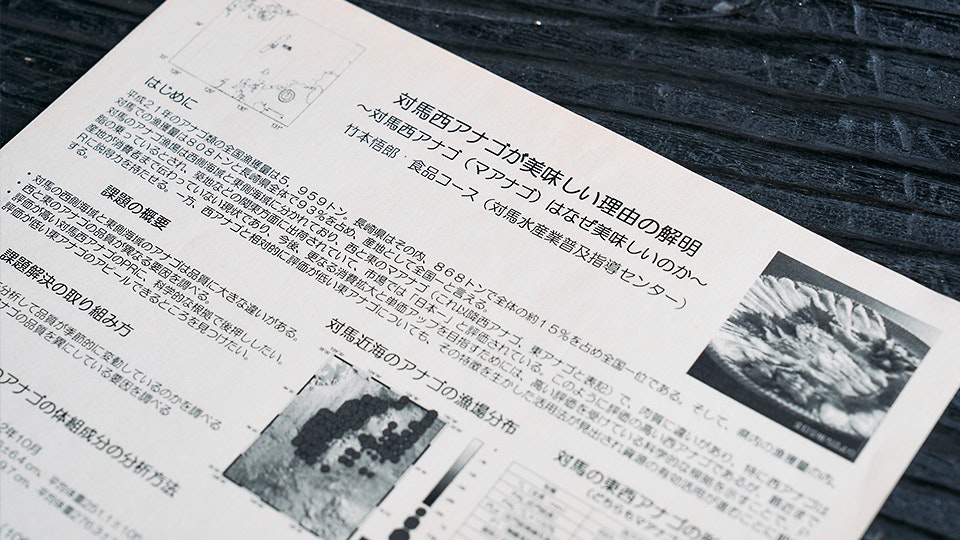 対馬西アナゴが美味しい理由の解明
～対馬西アナゴ（マアナゴ）はなぜ美味しいのか～
竹本悟郎：食品コース（対馬水産業普及指導センター）
はじめに
平成21年のアナゴ類の全国漁獲量は5,959トン。長崎県はその内、868トンで全体の約15％を占め全国一位である。そして、県内の漁獲量の内、
対馬での漁獲量は808トンと長崎県全体で93％を占め、産地として全国一と言える。
対馬のアナゴ漁場は西側海域と東側海域に分かれており、西と東のマアナゴ（これ以降西アナゴ、東アナゴと表記）で、肉質に違いがあり、特に西アナゴは
脂の乗っているとされ、築地などの関東方面に出荷されていて、市場では「日本一」と評価されている。このように評価の高い西アナゴであるが、
産地が消費者まで伝わっていない現状であり、今後、更なる消費拡大と単価アップを目指すためには、高い評価を受けている科学的な根拠を示すことで、P
Rに説得力を持たせる。一方、西アナゴと相対的に評価が低い東アナゴについても、その特徴を生かした活用法が見出されば資源の有効活用が
する。
課題の概要
・対馬の西側海域と東側海域のアナゴは品質に大きな違いがある。
・西と東のアナゴの品質が異なる要因を調べる。
・評価が高い対馬西アナゴのPRに、科学的な根拠で後押ししたい。
評価が低い東アナゴのアピールできるところを見つけたい。
課題解決の取り組み方
分析して品質が季節的に変動しているのかを調べる
アナゴの品質を異にしている要因を調べる
アナゴの体組成分の分析方法
2年10月
対馬近海のアナゴの漁場分布
対馬の東西アナゴの